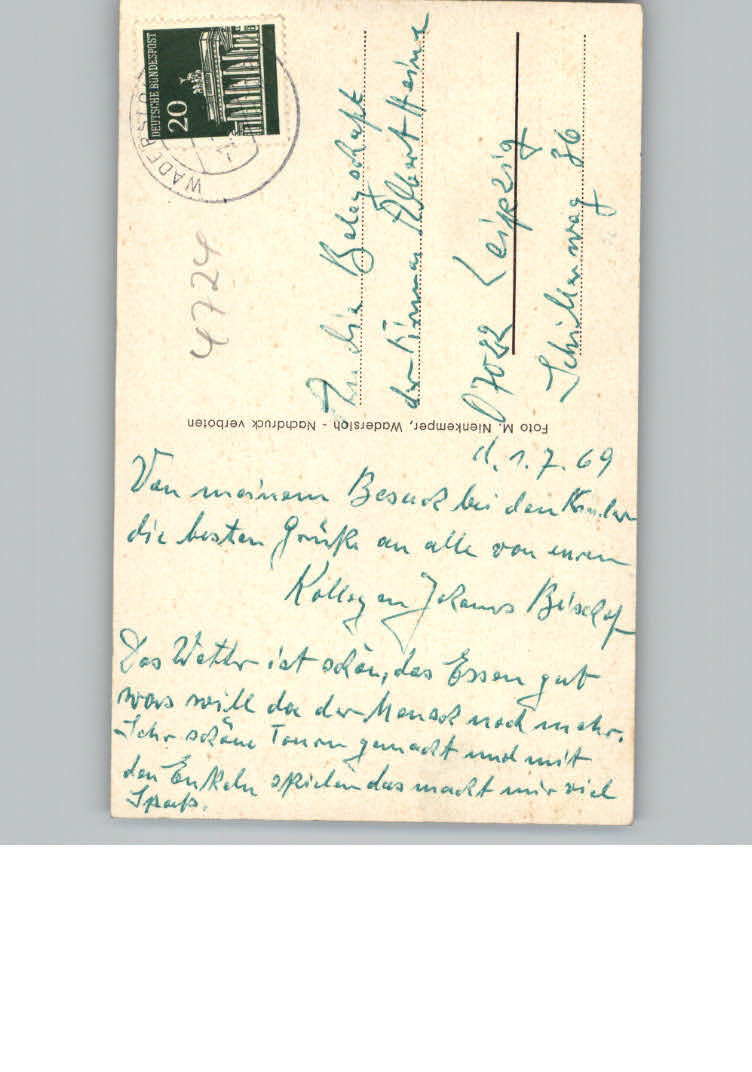 DEUTSCHE BUNDESPOST
20
WADERSLOH
4724
An die Belegschaft
der Firma Albert Heine
D 7022 Leipzig
Schillerweg 36
Foto M. Nienkemper, Wadersloh - Nachdruck verboten
d. 1.7.69
Von meinem Besuch bei den Kindern
die besten Grüße an alle von euren
Kollegen Johannes Bischof
Das Wetter ist schön, das Essen gut
was will da der Mensch noch mehr.
Sehr schöne Touren gemacht und mit
den Enkeln spielen das macht mir viel
Spaß.